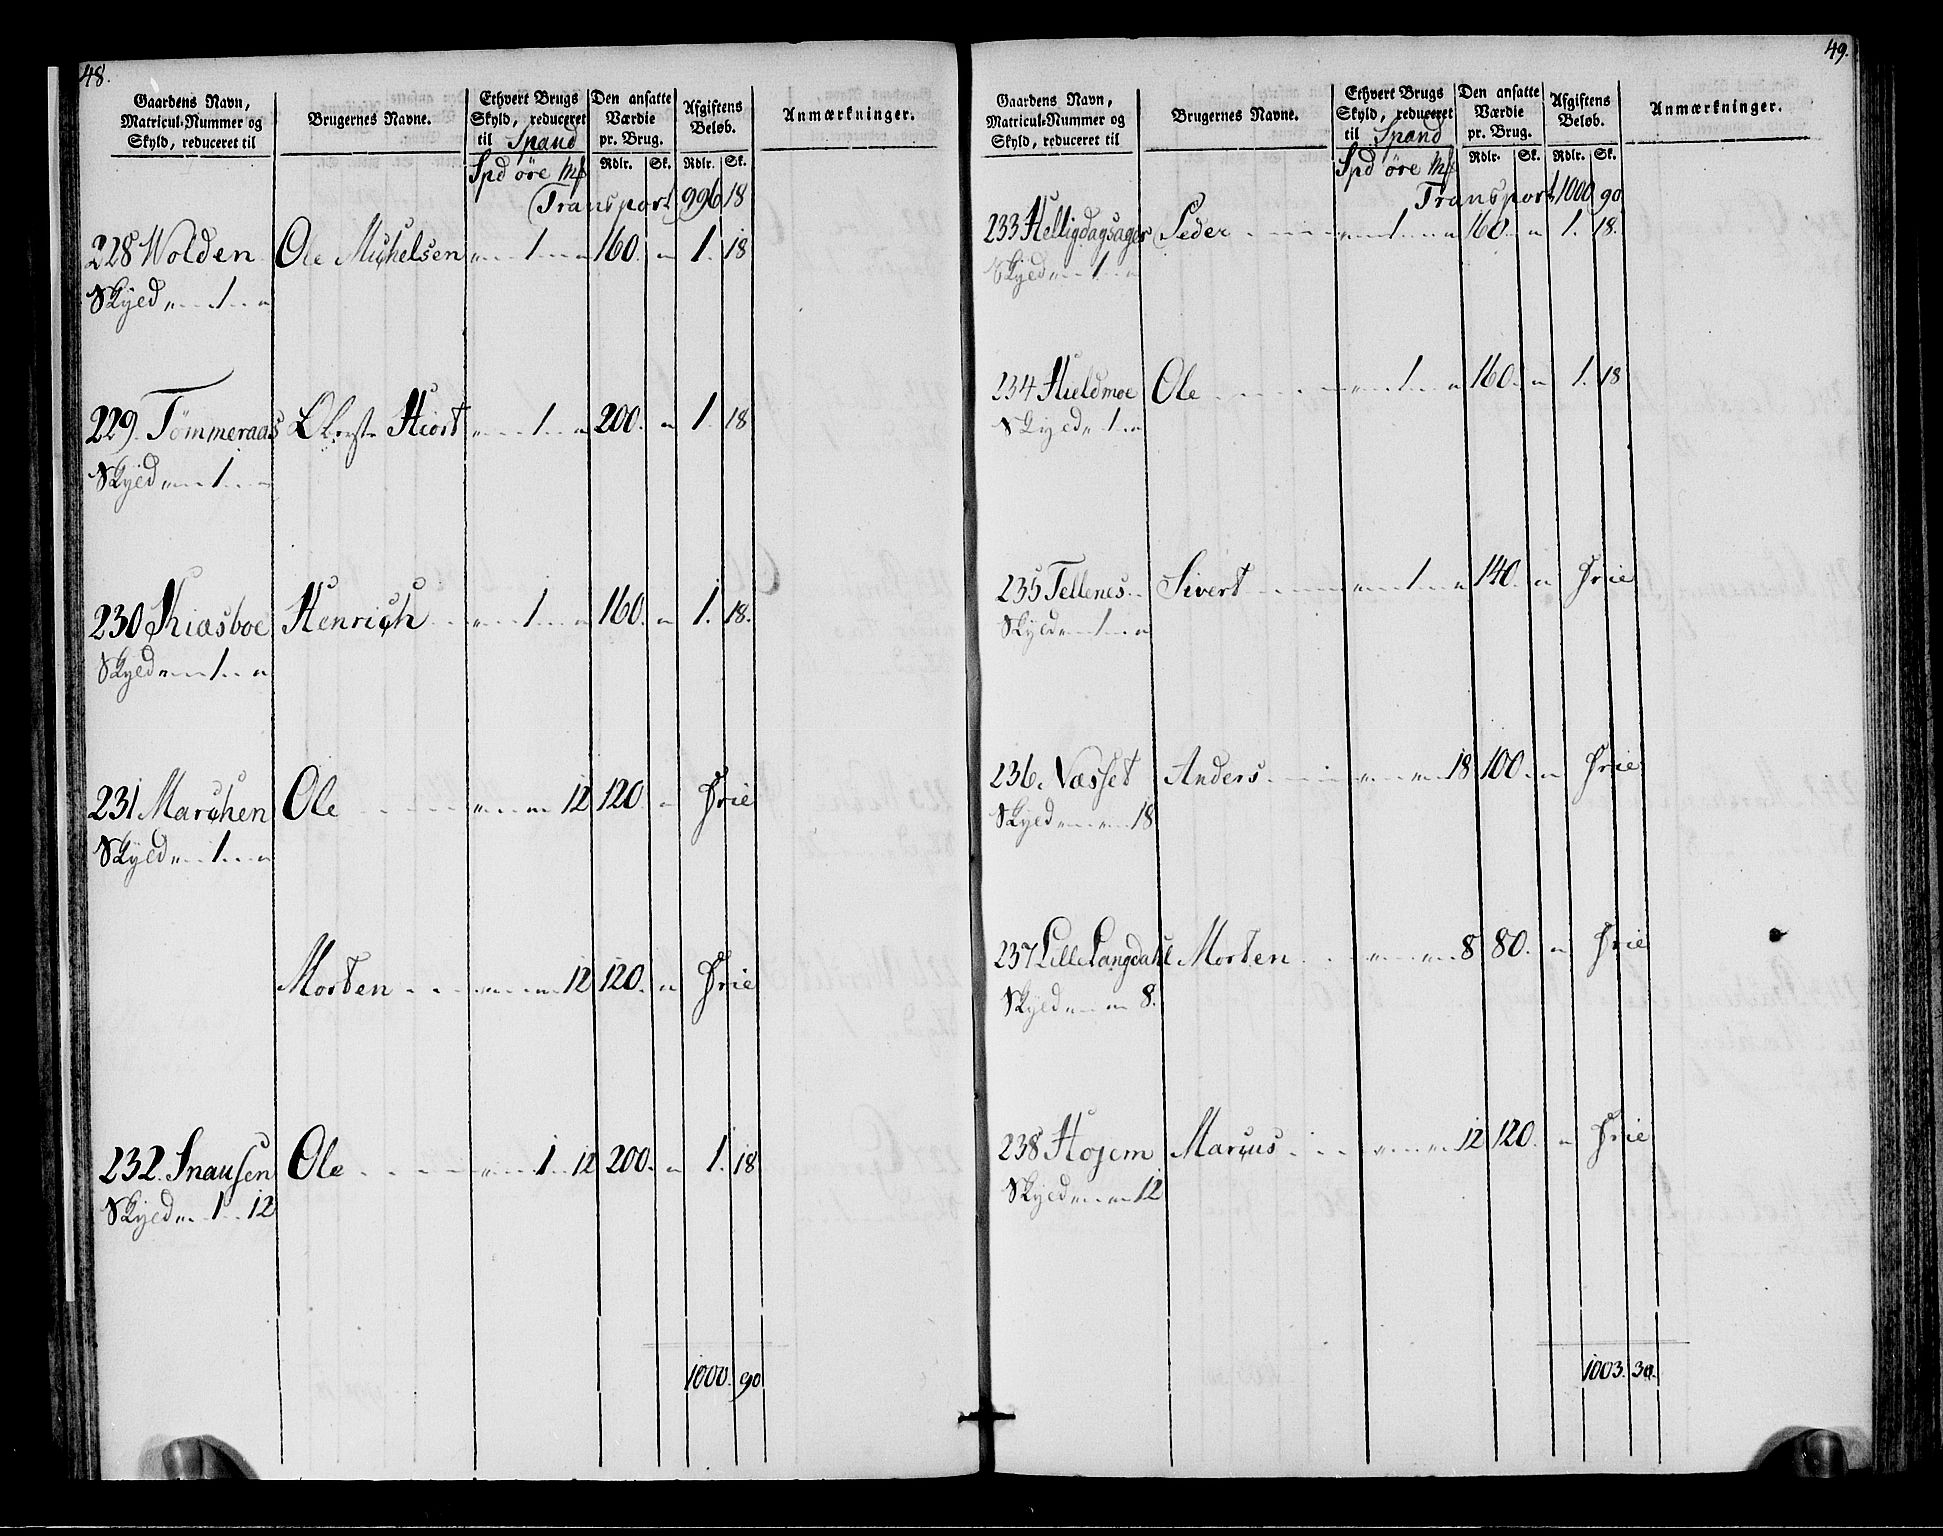 48.
Gaardens Navn, Matricul-Nummer og Skyld, reduceret til
Brugernes Navne.
Ethvert Brugs Skyld, reduceret til Spand
Den ansatte Værdie pr. Brug.
Afgiftens Beløb.
Anmærkninger.
Spd öre Mk Rdlr. Sk. Rdlr. Sk.
Transport 996 18
228 Wolden Ole Michelsen „ 1 „ 160. „ 1. 18
Skyld „ 1 „
229. Tömmeraas Hiort „ 1 „ 200. „ 1. 18
Skyld „ 1 „
230 Kiæsboe Henrich „ 1 „ 160. „ 1. 18.
Skyld „ 1 „
231 Marchen Ole „ „ 12 120. „ Frie
Skyld „ 1 „
Morten „ „ 12 120. „ Frie
232. Snausen Ole „ 1 12 200. „ 1. 18
Skyld „ 1 12
1000. 90
49.
Gaardens Navn, Matricul-Nummer og Skyld, reduceret til
Brugernes Navne.
Ethvert Brugs Skyld, reduceret til Spand
Den ansatte Værdie pr. Brug.
Afgiftens Beløb.
Anmærkninger.
Spd öre Mk Rdlr. Sk. Rdlr. Sk.
Transport 1000 90
233 Helligdagsager Peder „ 1 „ 160. „ 1. 18.
Skyld „ 1 „
234 Hieldmoe Ole „ 1 „ 160. „ 1. 18
Skyld „ 1 „
235 Tellenes Sivert „ 1 „ 140. „ Frie
Skyld „ 1 „
236. Næsset Anders „ „ 18 100. „ Frie
Skyld „ „ 18
237 Lille Langdahl Morten „ „ 8 80. „ Frie
Skyld „ „ 8.
238 Hojem Marcus „ „ 12 120. „ Frie
Skyld „ „ 12
1003. 30.